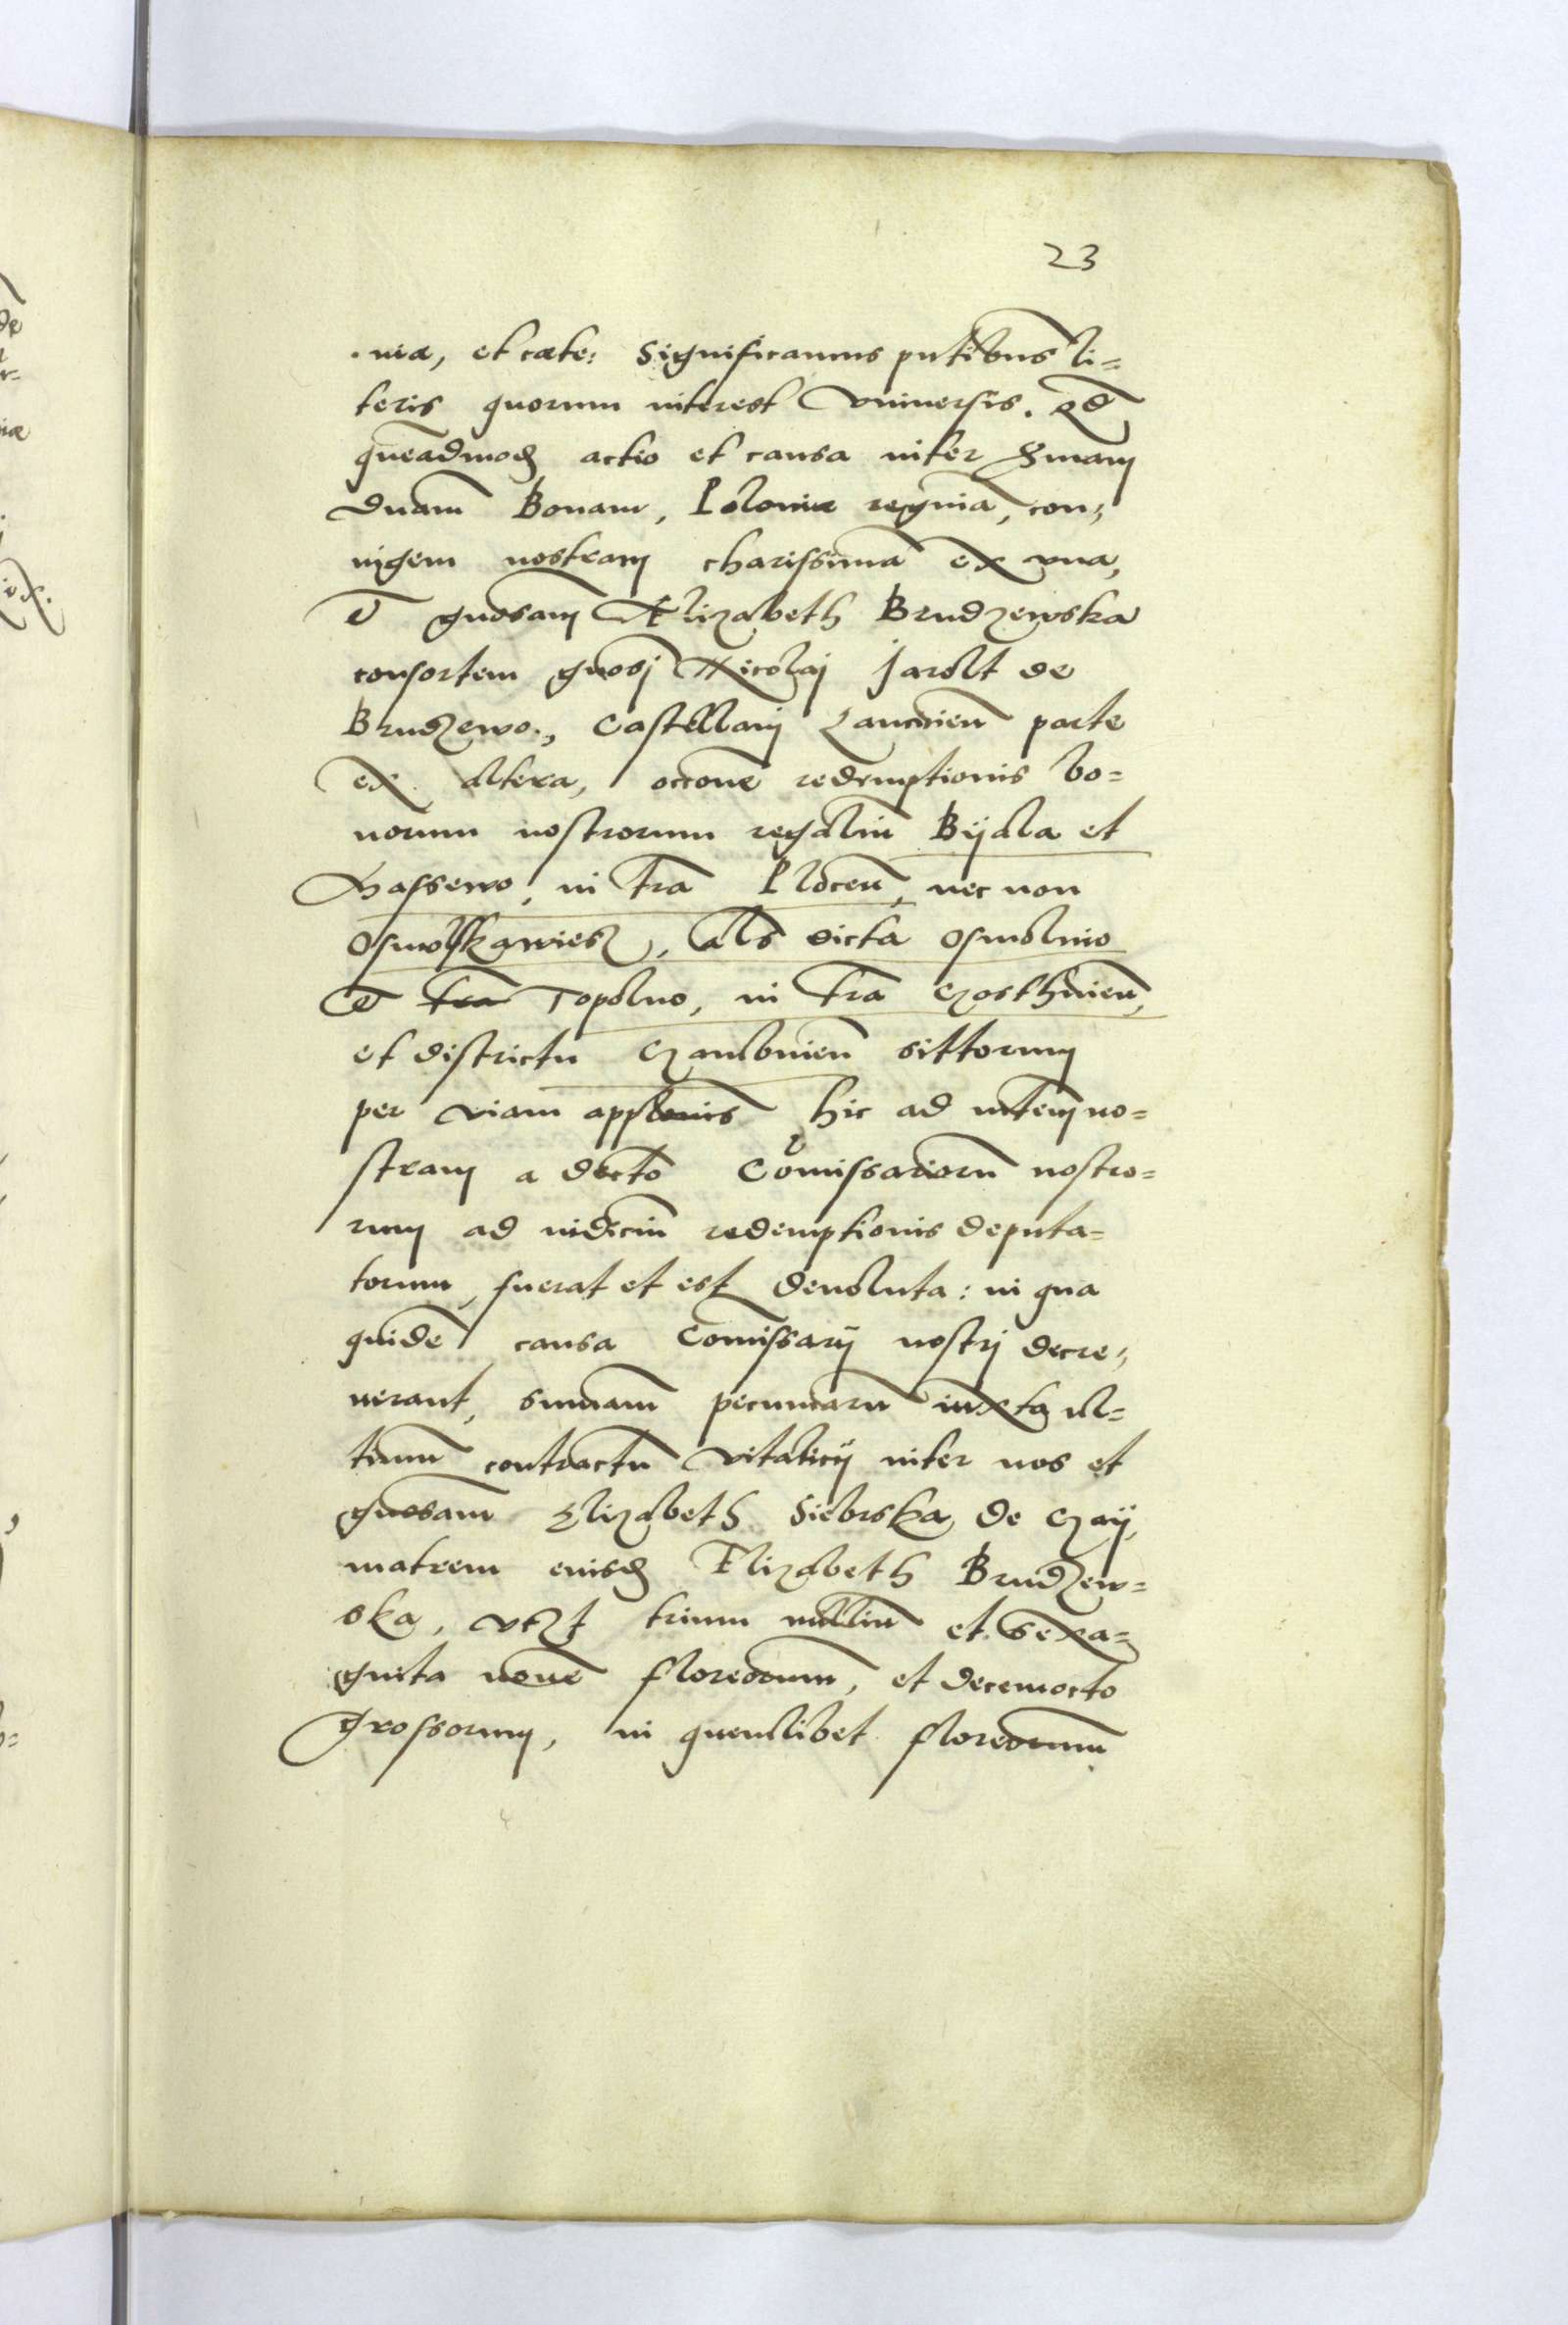 23
·niæ, et cæte: Significamus pntibus li=
teris quorum interest Vniuersis. qd
queadmod actio et causa inter Smam
Dnam Bonam, Poloniæ reginã, con=
iugem nostram charissimã ex vna,
Et gnosam Elizabeth Brudzewska
consortem gnosi Nicolai Jarolt de
Brudzewo., Castellani Lancicien parte
ex altera, occone redemptionis bo=
norum nostrorum regaliu Bijala et
Dassewo, in tra Plocen, nec non
Osmolskawiesz, als dicta Osmolnio
Et tra Topolno, in tra Gosthinien,
et districtu Gambinien sittorum
per viam applonis hic ad mtem no=
stram a decto Comissariorũ nostro=
rum ad iudiciũ redemptionis deputa=
torum, fuerat et est deuoluta: in qua
quidẽ causa Comissarij nostri decre=
uerant, sumam pecuniarũ iuxta ul=
timũ contractũ vitalicij inter nos et
gnosam Elizabeth Siebrska de Gaij,
matrem eiusd Elizabeth Brudzew=
ska, vtzt trium milliũ et sexa=
ginta nouẽ florenorum, et decemocto
grossorum, in quemlibet florenorum